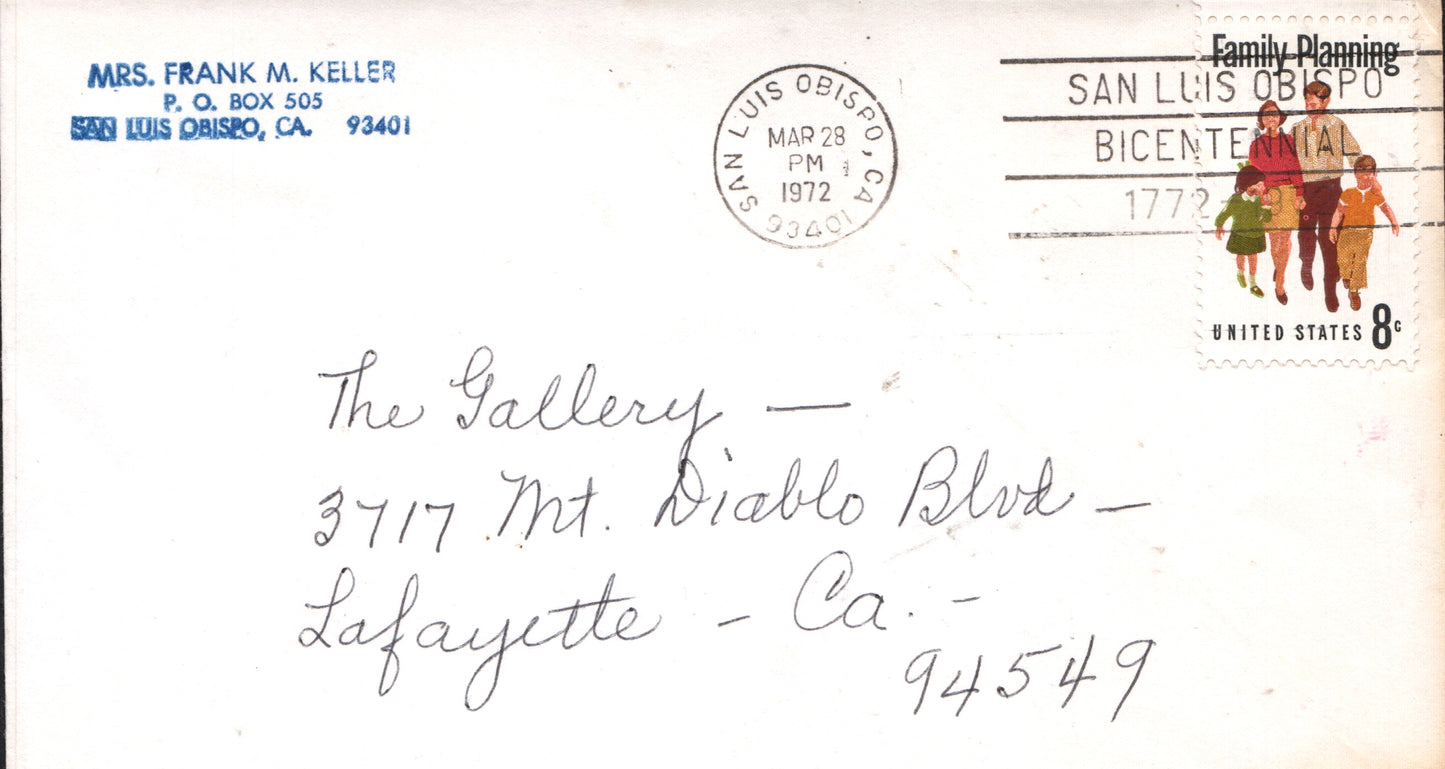 MRS. FRANK M. KELLER
P. O. BOX 505
SAN LUIS OBISPO, CA. 93401
SAN LUIS OBISPO, CA
MAR 28
PM
1972
93401
Family Planning
SAN LUIS OBISPO
BICENTENNIAL
1772-
UNITED STATES 8c
The Gallery —
3717 Mt. Diablo Blvd —
Lafayette - Ca. -
94549